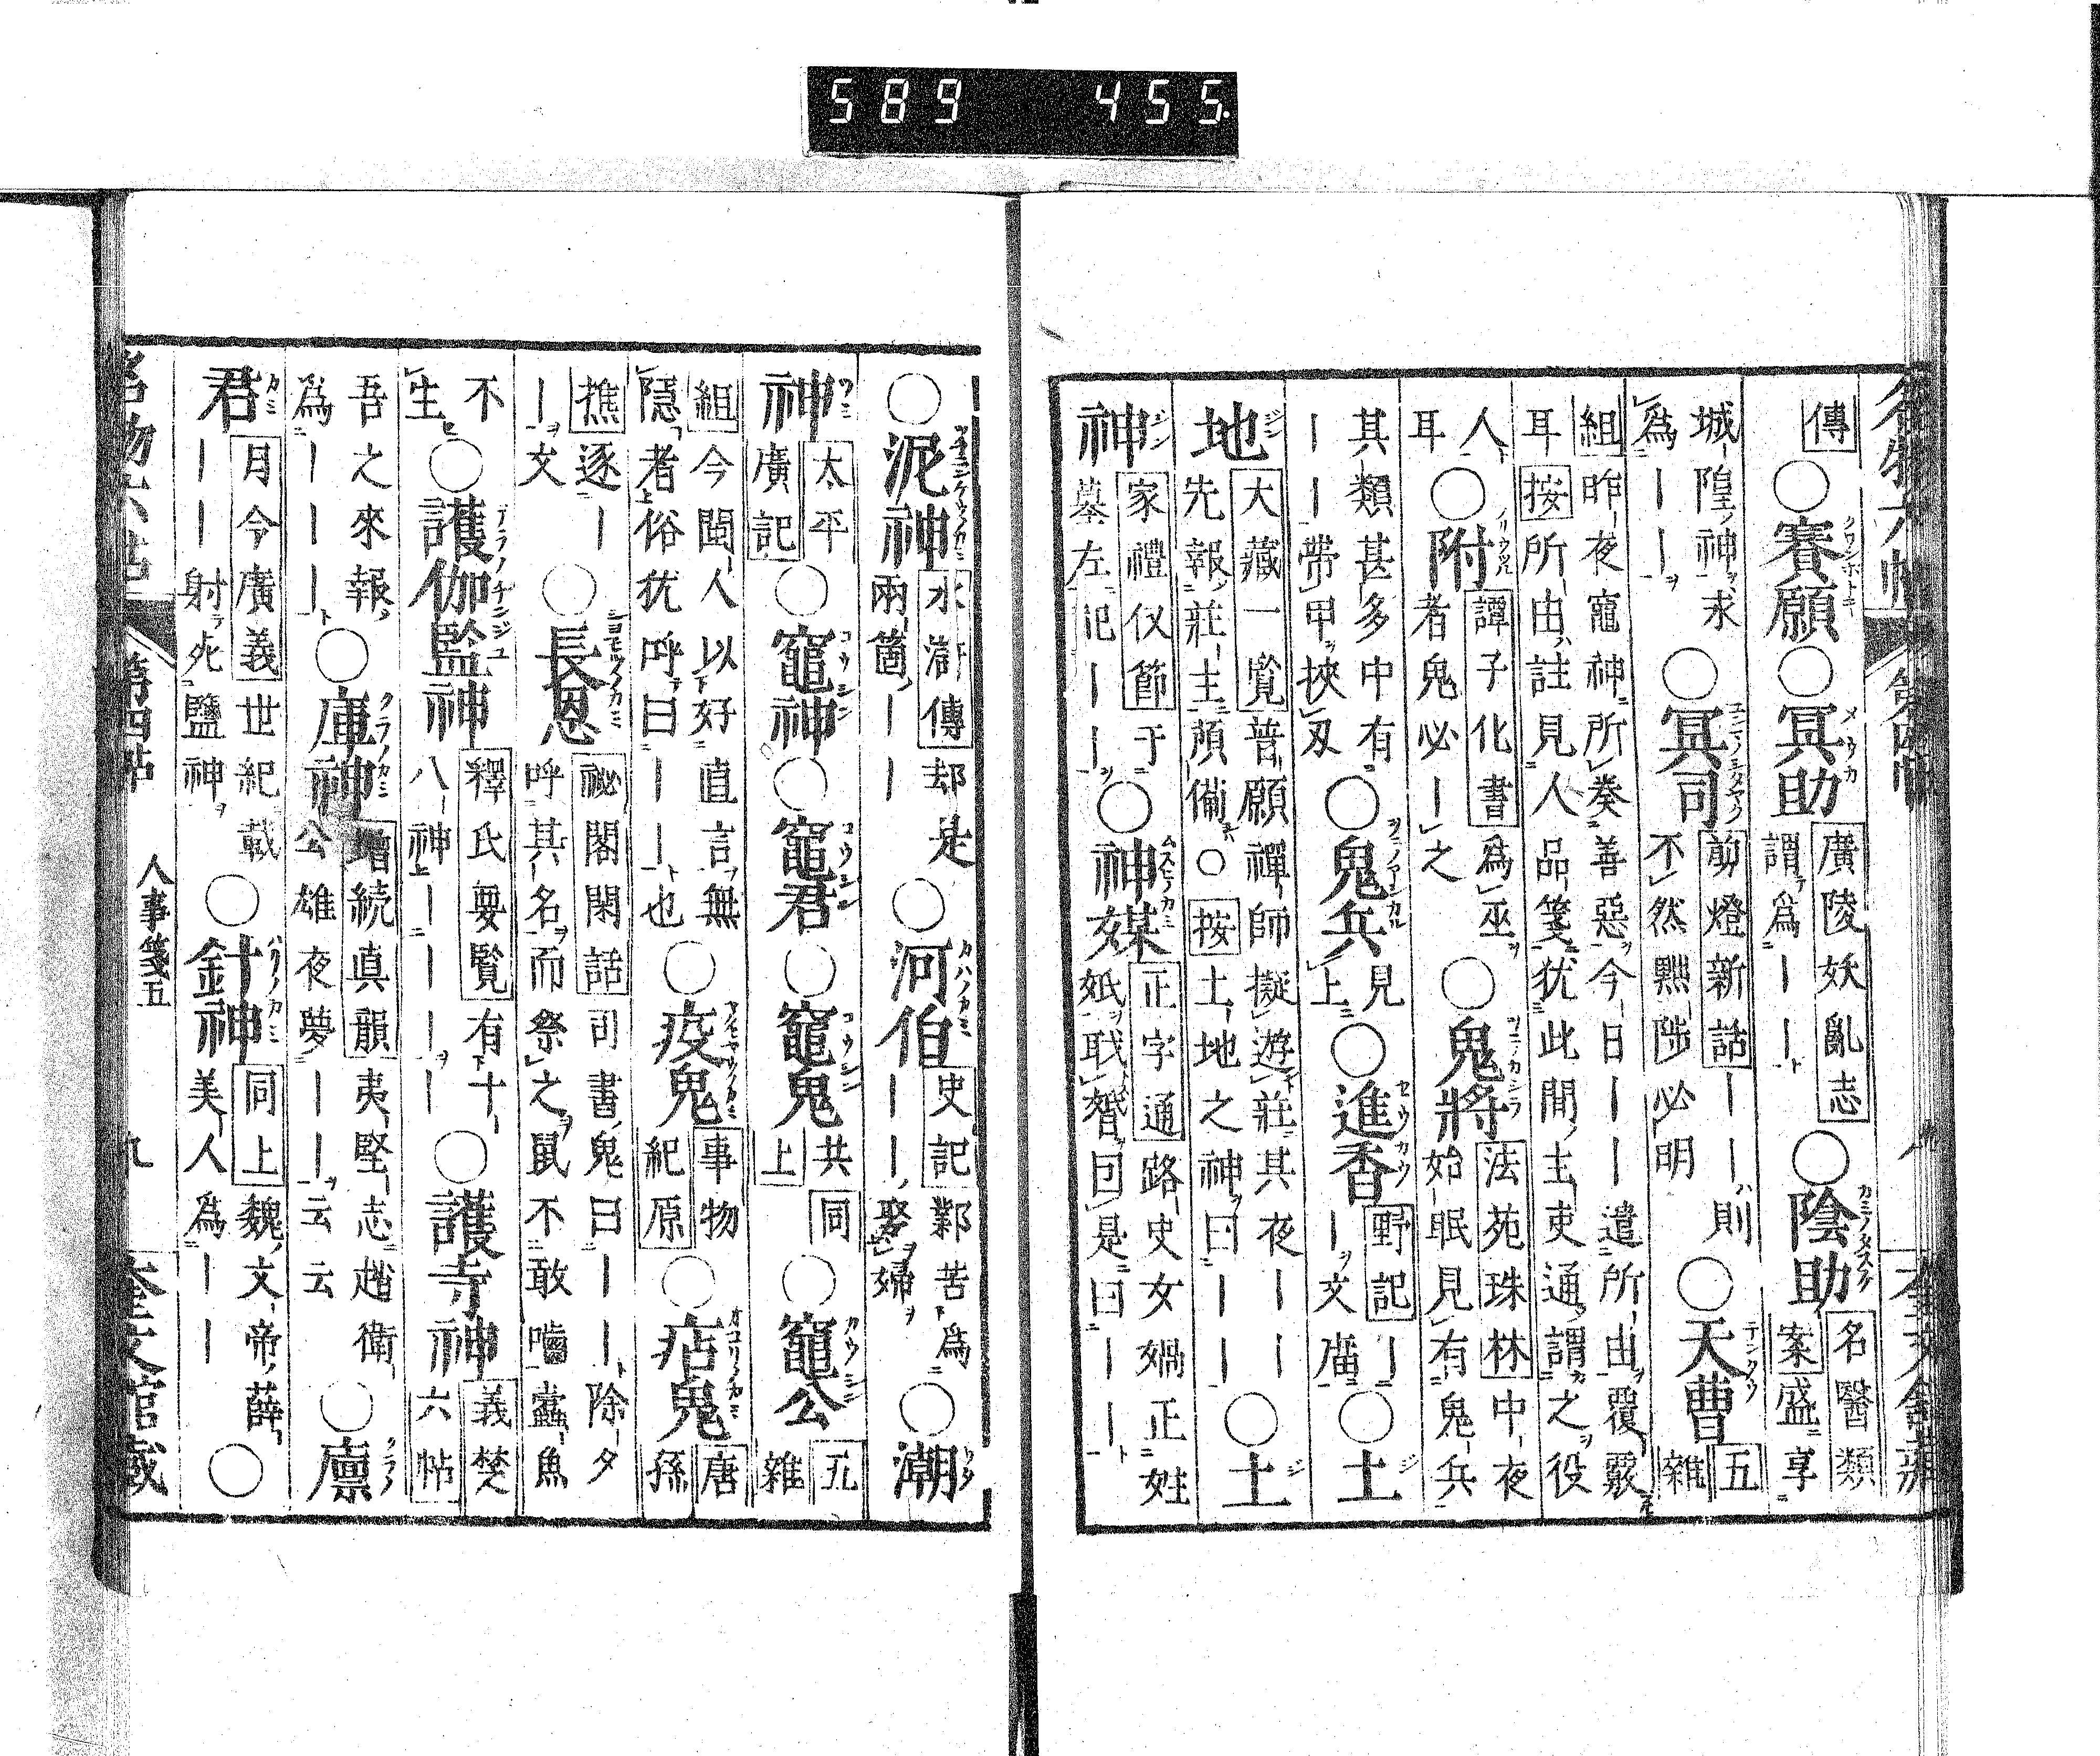 589 455.
傳 ○賽願 ○冥助 廣陵妖亂志 謂為｜｜ ○陰助 名醫類案 盛享
城隍神求為｜｜ ○冥司 剪燈新話 ｜｜則不然黙陟必明 ○天曹 五雜
組 昨夜竈神所奏善惡今日｜｜遣所由覆覈耳 按 所由註見人品箋猶此間主吏通謂之役
人耳 ○附 譚子化書 為巫者鬼必｜之 ○鬼將 法苑珠林 中夜始眠見有鬼兵
其類甚多中有｜｜帶甲挾刃 ○鬼兵 見上 ○進香 野記 ｜｜文廟 ○土
地 大藏一覧 普願禪師擬遊莊其夜｜｜先報莊主預備 ○ 按 土地之神曰｜｜ ○土
神 家禮仪節 于墓左祀｜｜ ○神媒 正字通 路史女媧正姓
○泥神 水滸傳 却是兩箇｜｜ ○河伯 史記 鄴苦為｜｜娶婦 ○潮
神 太平廣記 ○竈神 ○竈君 ○竈鬼 共同上 ○竈公 五雜
組 今閩人以好直言無隱者俗猶呼曰｜｜也 ○疫鬼 事物紀原 ○痁鬼 唐孫
樵 逐｜｜文 ○長恩 祕閣閑話 司書鬼曰｜｜除夕呼其名而祭之鼠不敢嚙蠧魚
不生 ○護伽監神 釋氏要覧 有十八神｜｜｜｜ ○護寺神 義楚六帖
吾之來報為｜｜｜ ○庫神 增続真韻 夷堅志趙衛公雄夜夢｜｜云云 ○廪
君 月令廣義 世紀載｜｜｜射死鹽神 ○針神 同上 魏文帝薛美人為｜｜ ○
名物六帖 第四帖 人事箋五 九 奎文館藏